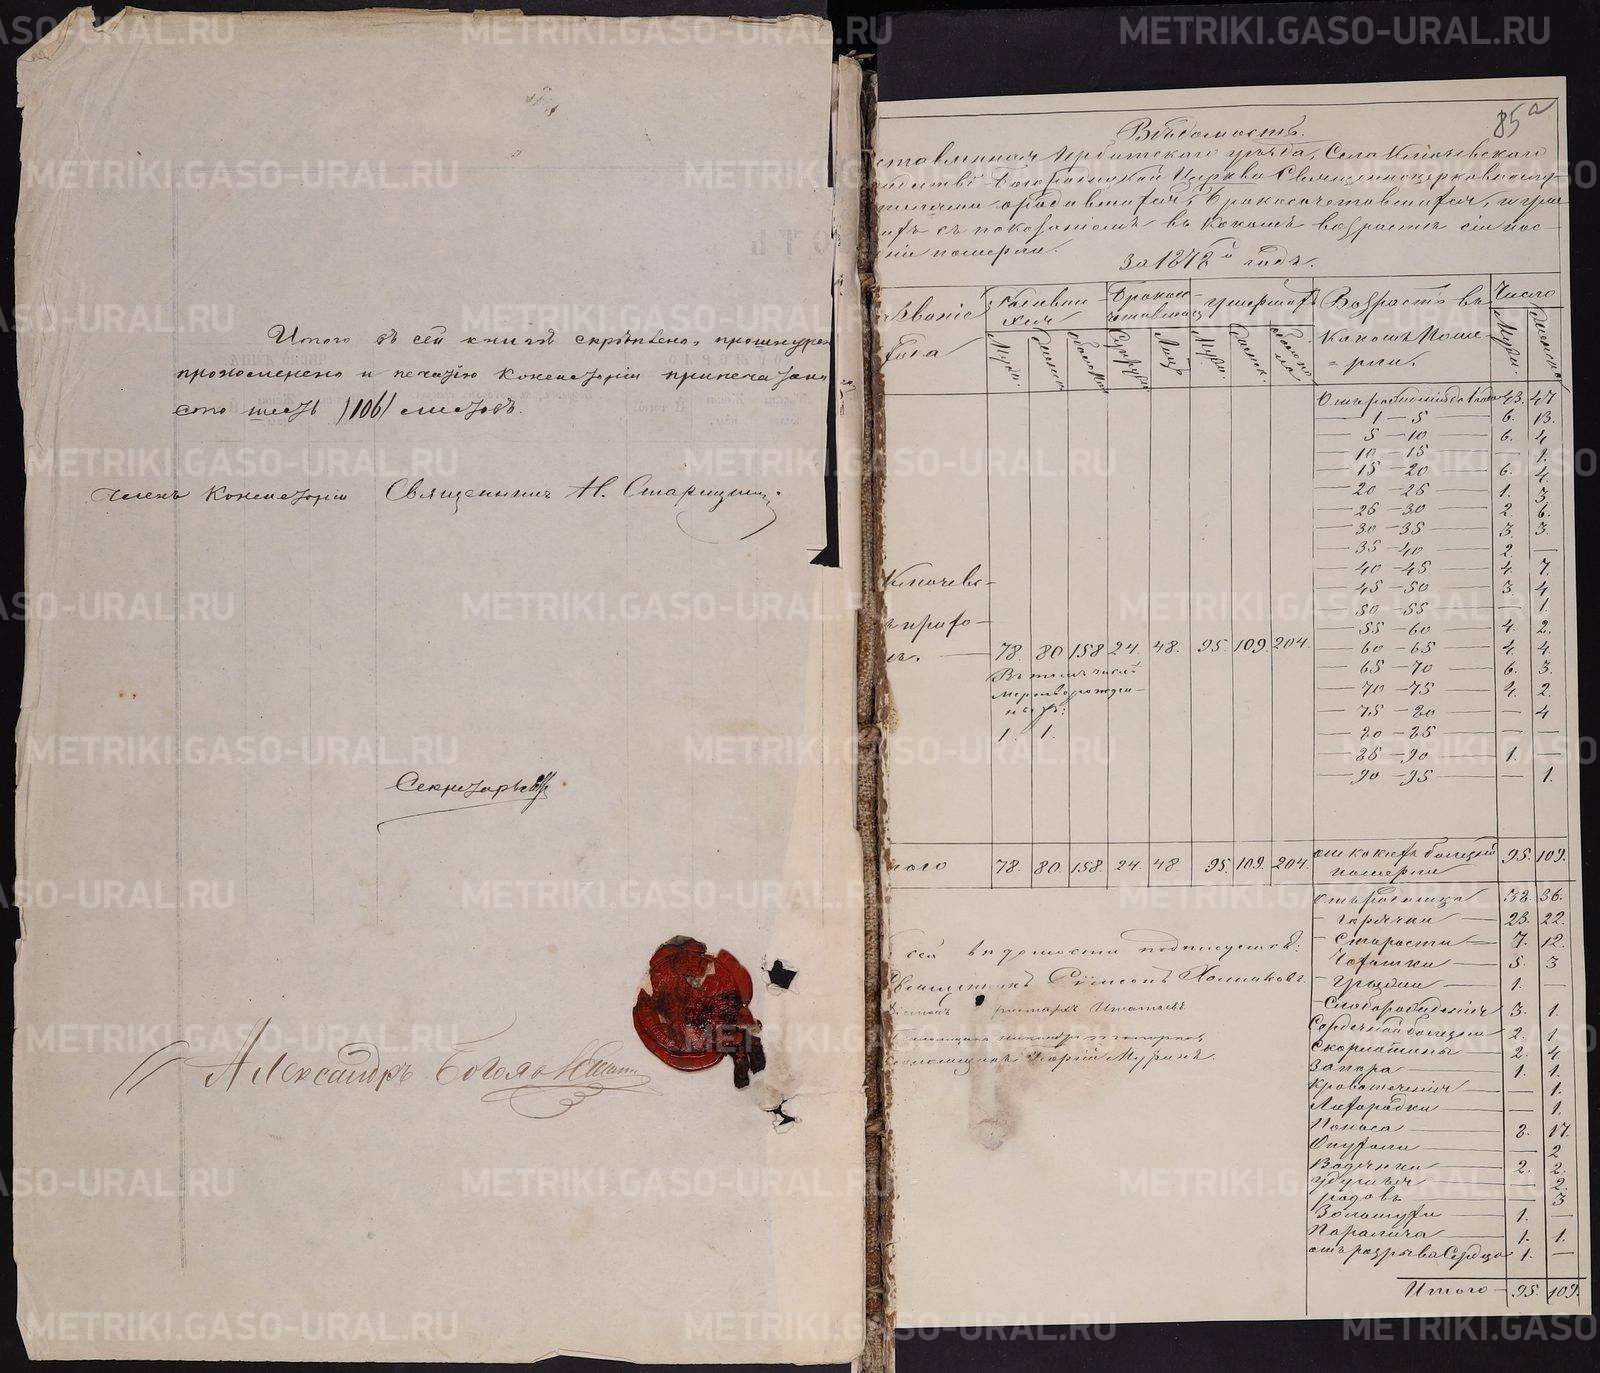 Итого въ сей книгѣ скрѣплено, прошнуро
прономеровано и печатію Консисторіи припечатано
сто шесть (106) листовъ.
Членъ Консисторіи Священникъ Н. Старицинъ
Секретарь
Александръ
85а
Вѣдомость
ставленная Ирбитскаго уѣзда, Села Ключевскаго
Богородицкой Церкви Священноцерковнослу-
жителями о родившихся, Бракосочетавшихся, и умер
шихъ съ показаніемъ въ какомъ возрастѣ сіи пос-
ніи померли.
За 1878й годъ.
Званіе Родивши Бракосо- умершихъ Возрастъ въ Число
хся четавших
года Мужи. Женска обоего Супруж Лицъ Мужи. Женск. обоего по ла какомъ Поме- Мужи. Женска
= рли.
Отъ рожденія до 1 года 43. 47
1 — 5 6. 13.
5 — 10 6. 4
10 — 15 — 1.
15 — 20 6. 4.
20 — 25 1. 3.
25 — 30 2. 6.
30 — 35 3. 3.
35 — 40 2. —
40 — 45 4. 7.
45 — 50 3. 4
50 — 55 — 1.
55 — 60 4. 2.
60 — 65 4. 4.
65 — 70 6. 3.
70 — 75 4. 2.
75 — 80 — 4
80 — 85 — —
85 — 90 1.
90 — 95 — 1.
Ключевс-
прихо-
ѣ. — 78. 80 158 24. 48. 95. 109. 204.
Въ томъ числѣ
мертворожден-
ныхъ:
1. 1.
того 78. 80. 158. 24. 48. 95. 109. 204. отъ какихъ болѣзней 95. 109.
померли
Отъ родимца 38. 36.
— горячки — 23. 22.
— Старости — 7. 12.
— Чахотки — 5. 3
— грыжи — 1. —
— Слаборожденія 3. 1.
Сердечной болѣзни 2. 1
Скарлатины — 2. 4.
Запора — 1. 1.
Кровотеченія — — 1.
Лихорадки — — 1.
Поноса — 2. 17.
Опухоли — — 2
Водянки — 2. 2.
удушья — — 2.
родовъ — — 3
Золотухи — 1. —
Паралича — 1. 1.
отъ разрыва Сердца 1. —
Итого — 95. 109.
сей вѣдомости подписуемся:
Священникъ Симеонъ Хлыновъ.
Игнатьевъ
Георгій Муринъ.
METRIKI.GASO-URAL.RU